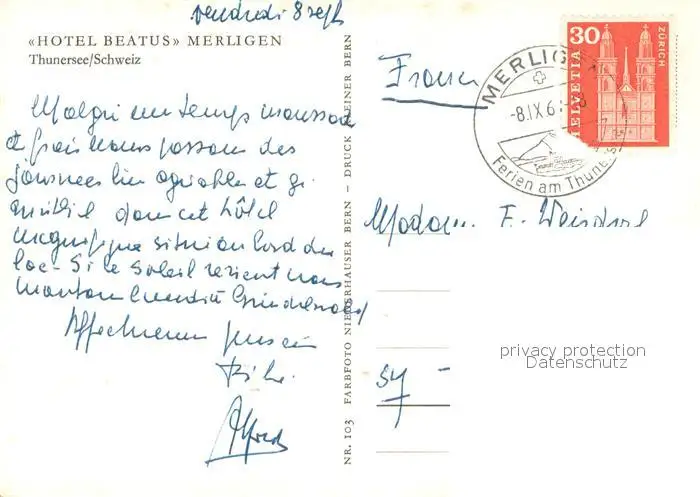 vendredi 8 sept
«HOTEL BEATUS» MERLIGEN
Thunersee/Schweiz
Malgré un temps maussade
et frais nous passons des
journées bien agréables et
dans cet hôtel
magnifique situé au bord du
lac - Si le soleil revient nous
montons lundi à Grindelwald
Affectueux
Alfred
NR. 103 FARBFOTO NIEDERHAUSER BERN – DRUCK STEINER BERN
France
MERLIGEN
-8.IX.6
Ferien am Thunersee
30
HELVETIA
ZÜRICH
Madame E.
privacy protection
Datenschutz